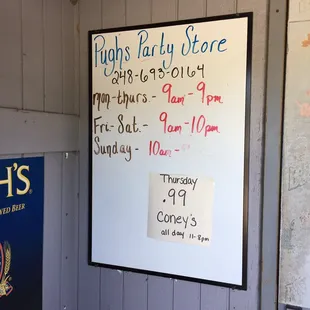 Pughs Party Store
248-693-0164
mon-thurs.- 9am-9pm
Fri-Sat.- 9am-10pm
Sunday- 10am-
Thursday
.99
Coney's
all day 11-8pm
H'S
BEER